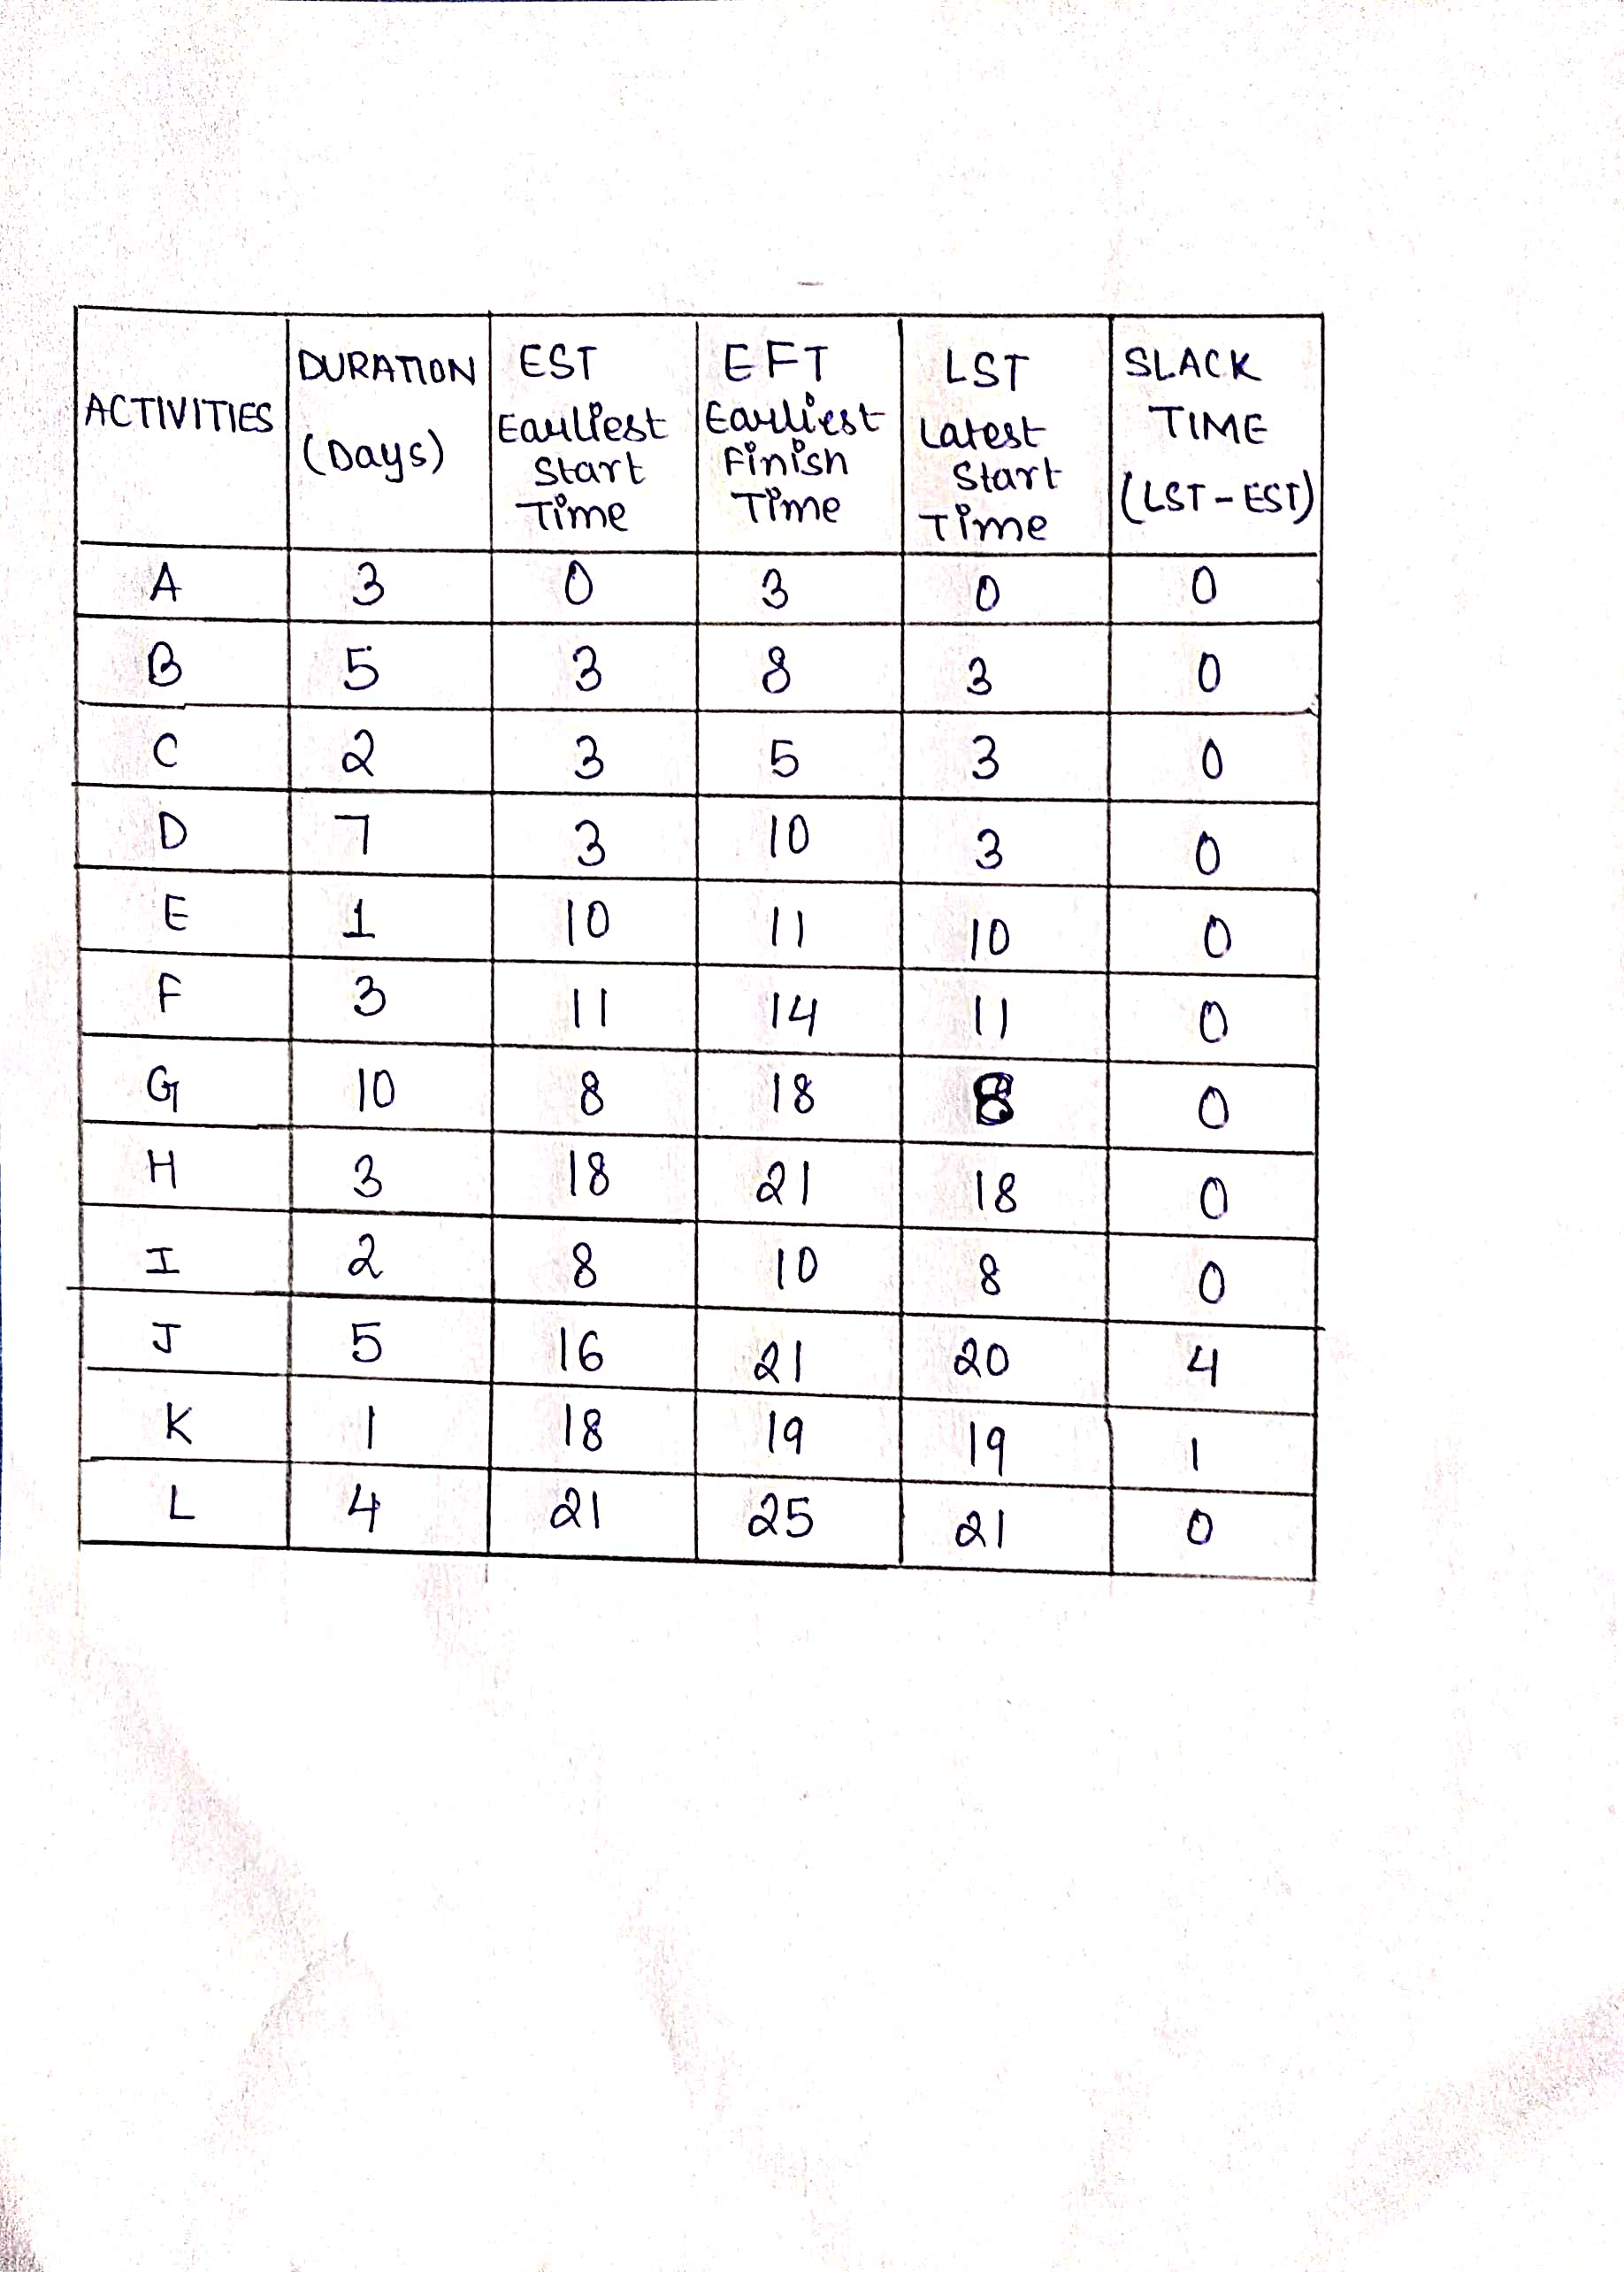 ACTIVITIES DURATION (Days) EST Earliest Start Time EFT Earliest Finish Time LST Latest Start Time SLACK TIME (LST-EST)
A 3 0 3 0 0
B 5 3 8 3 0
C 2 3 5 3 0
D 7 3 10 3 0
E 1 10 11 10 0
F 3 11 14 11 0
G 10 8 18 8 0
H 3 18 21 18 0
I 2 8 10 8 0
J 5 16 21 20 4
K 1 18 19 19 1
L 4 21 25 21 0